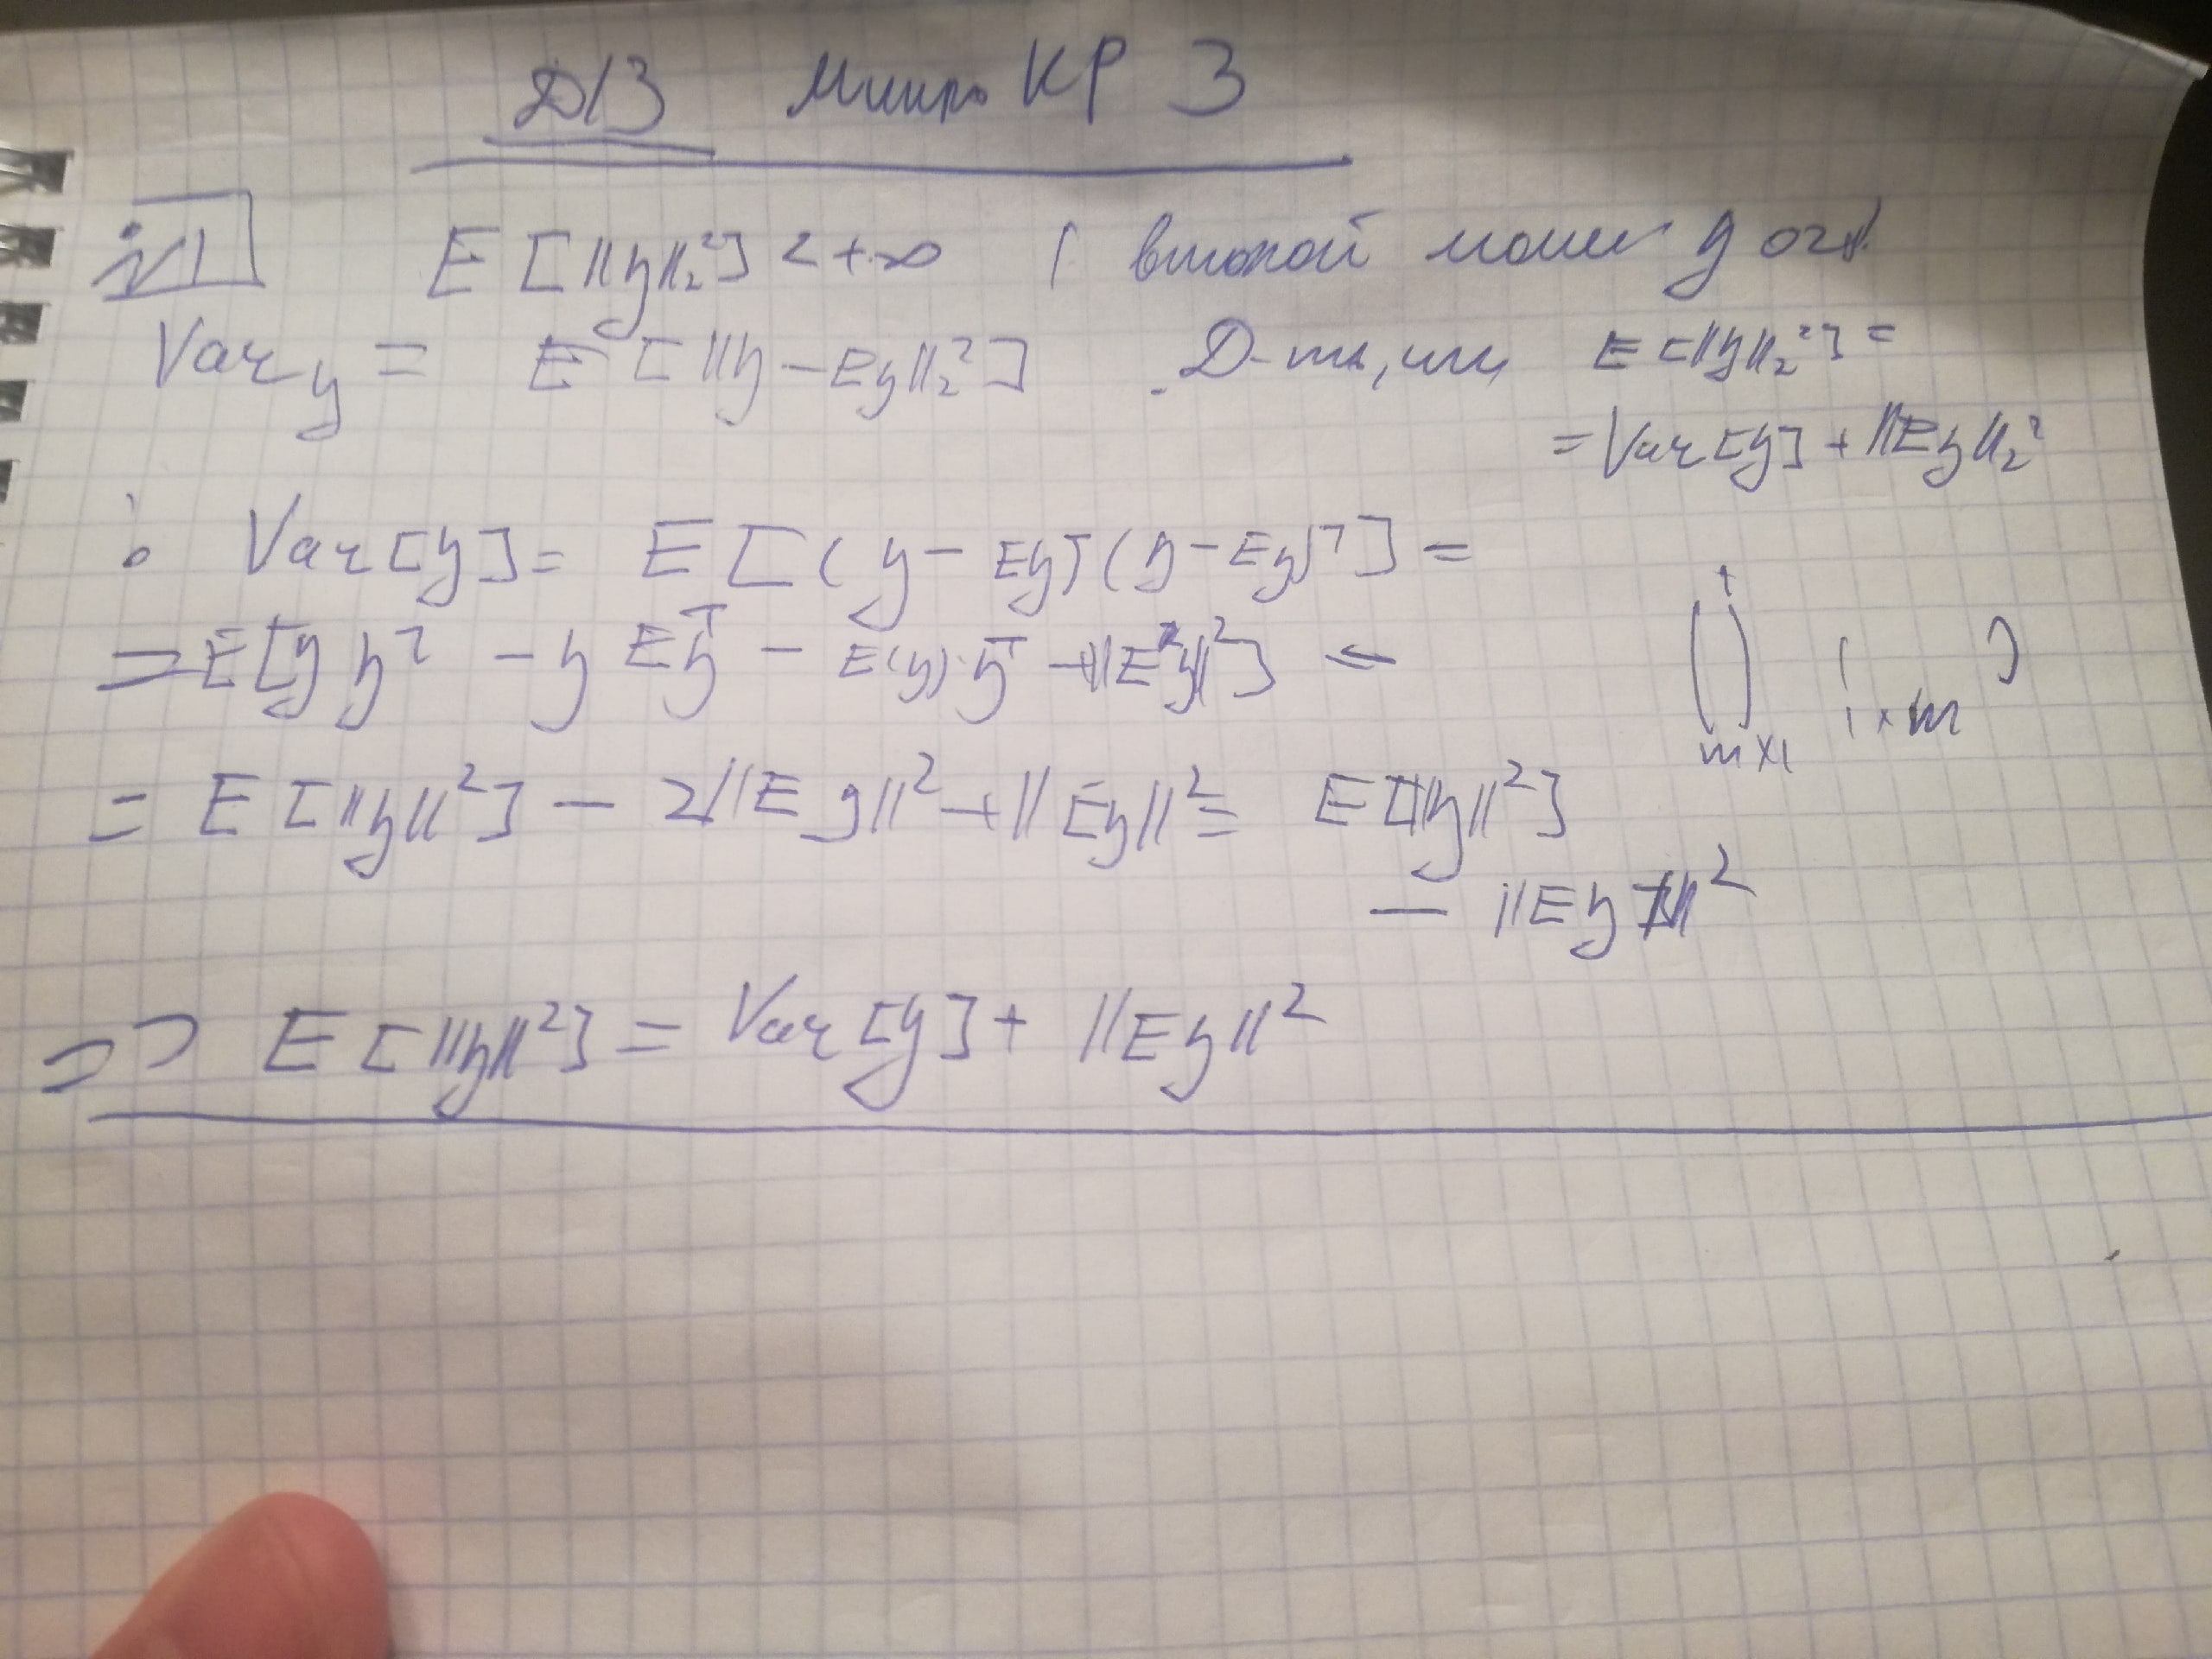 Д/З Микро КР 3
№1 E[||y||₂²] < +∞ ( второй момент y огр.
Var y = E[||y - Ey||₂²] . Д-ть, что E[||y||₂²] =
= Var[y] + ||Ey||₂²
: Var[y] = E[(y - Ey)(y - Ey)ᵀ] =
= E[y yᵀ - y Eyᵀ - E(y)·yᵀ + ||Ey||²] =
( )
m×1 ( )
1×m
= E[||y||²] - 2||Ey||² + ||Ey||² = E[||y||²]
- ||Ey||²
=> E[||y||²] = Var[y] + ||Ey||²